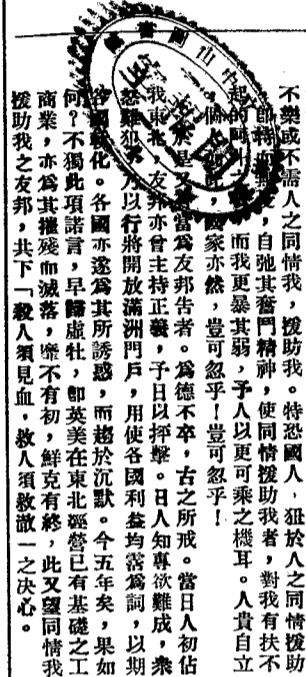 不樂或不需人之同情我，援助我。特恐國人，狃於人之同情援助
即恃而無，自弛其奮鬥精神，使同情援助我者，對我有扶不
起的阿斗，而我更暴其弱，予人以更可乘之機耳。人貴自立
個人，家亦然，豈可忽乎！豈可忽乎！
當爲友邦吿者。爲德不卒，古之所戒。當日人初佔
我東北，友邦亦曾主持正義，予日以抨擊。日人知專欲難成，衆
怒難犯，乃以行將開放滿洲門戶，用使各國利益均霑爲詞，以期
各國軟化。各國亦遂爲其所誘惑，而趨於沉默。今五年矣，果如
何？不獨此項諾言，早歸虛牝，卽英美在東北經營已有基礎之工
商業，亦爲其摧殘而滅落，靡不有初，鮮克有終，此又望同情我
援助我之友邦，共下「殺人須見血，救人須救澈」之決心。